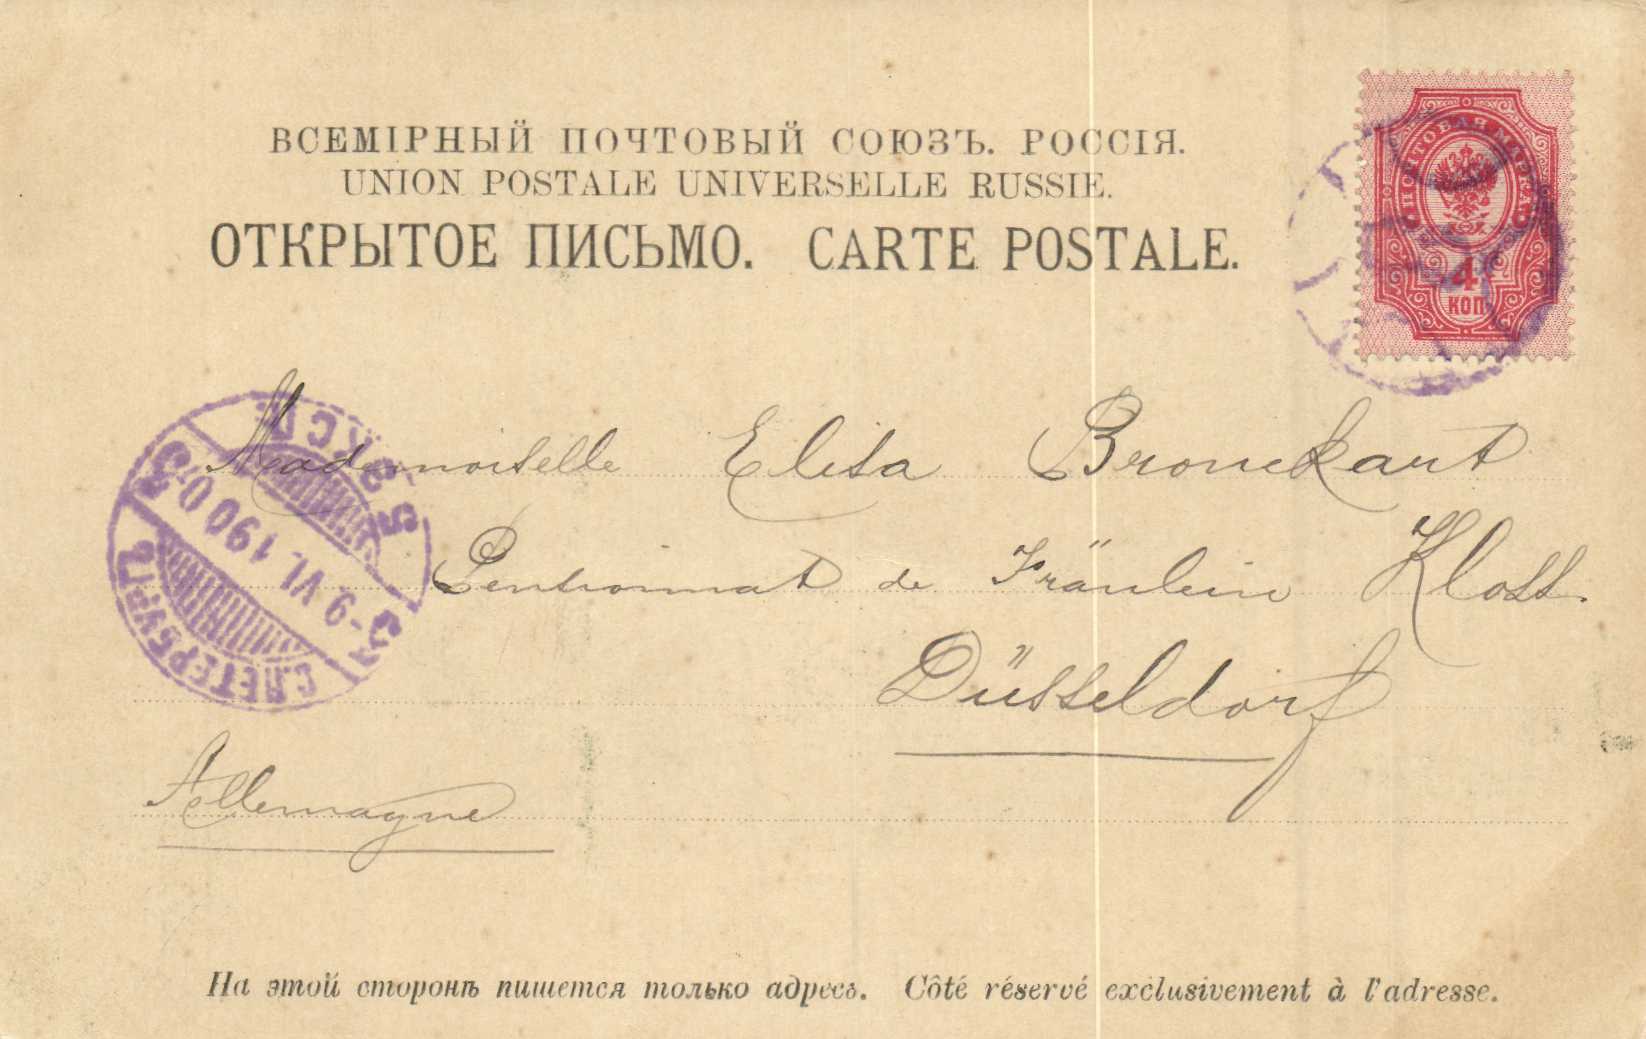 ВСЕМІРНЫЙ ПОЧТОВЫЙ СОЮЗЪ. РОССІЯ.
UNION POSTALE UNIVERSELLE RUSSIE.
ОТКРЫТОЕ ПИСЬМО. CARTE POSTALE.
ПОЧТОВАЯ МАРКА
4
КОП
Mademoiselle Elisa Bronckart
Pensionnat de Fräulein Kloss.
Düsseldorf
Allemagne
С.ПЕТЕРБУРГЪ
9 VI. 1900
На этой сторонѣ пишется только адресъ. Côté réservé exclusivement à l'adresse.